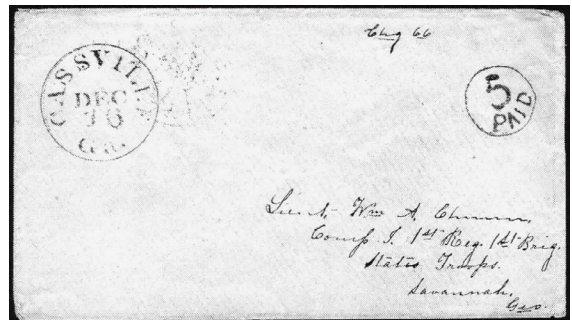 Chg 66
CASSVILLE
DEC
16
Ga.
5
PAID
Lieut. Wm A. Chunn,
Comp I. 1st Reg. 1st Brig.
States Troops.
Savannah,
Geo.